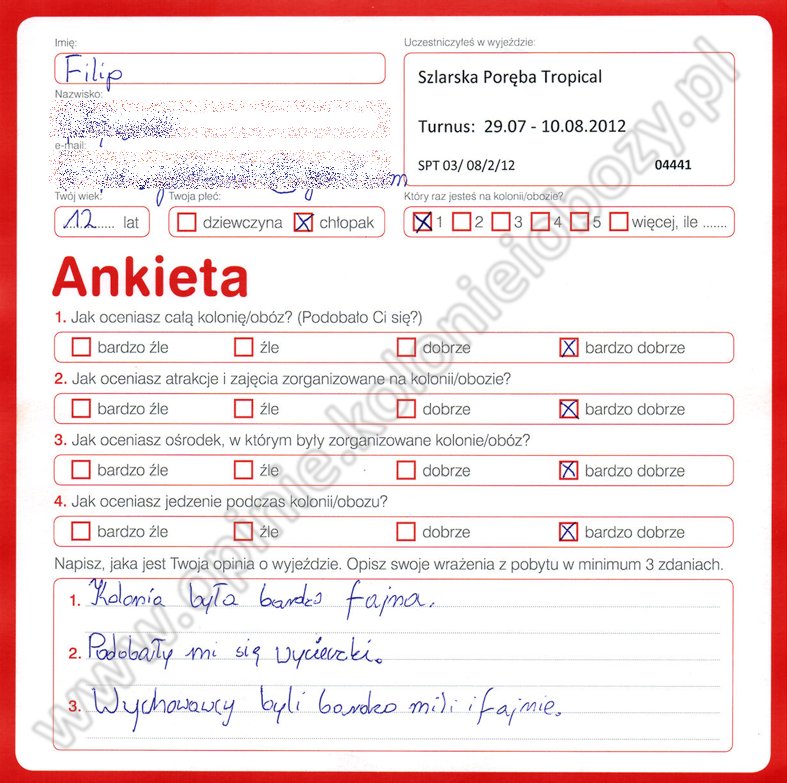 Imię:
Uczestniczyłeś w wyjeździe:
Filip
Szlarska Poręba Tropical
Nazwisko:
Turnus: 29.07 - 10.08.2012
e-mail:
SPT 03/ 08/2/12 04441
Twój wiek: Twoja płeć: Który raz jesteś na kolonii/obozie?
12 lat dziewczyna chłopak 1 2 3 4 5 więcej, ile .......
Ankieta
1. Jak oceniasz całą kolonię/obóz? (Podobało Ci się?)
bardzo źle źle dobrze bardzo dobrze
2. Jak oceniasz atrakcje i zajęcia zorganizowane na kolonii/obozie?
bardzo źle źle dobrze bardzo dobrze
3. Jak oceniasz ośrodek, w którym były zorganizowane kolonie/obóz?
bardzo źle źle dobrze bardzo dobrze
4. Jak oceniasz jedzenie podczas kolonii/obozu?
bardzo źle źle dobrze bardzo dobrze
Napisz, jaka jest Twoja opinia o wyjeździe. Opisz swoje wrażenia z pobytu w minimum 3 zdaniach.
1. Kolonia była bardzo fajna.
2. Podobały mi się wycieczki.
3. Wychowawcy byli bardzo mili i fajnie.
www.opinie.kolonieiobozy.pl